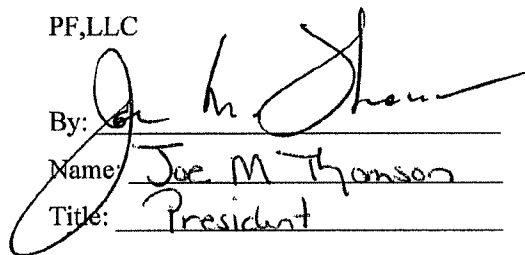 PF,LLC
By: Joe M. Thomson
Name: Joe M Thomson
Title: President